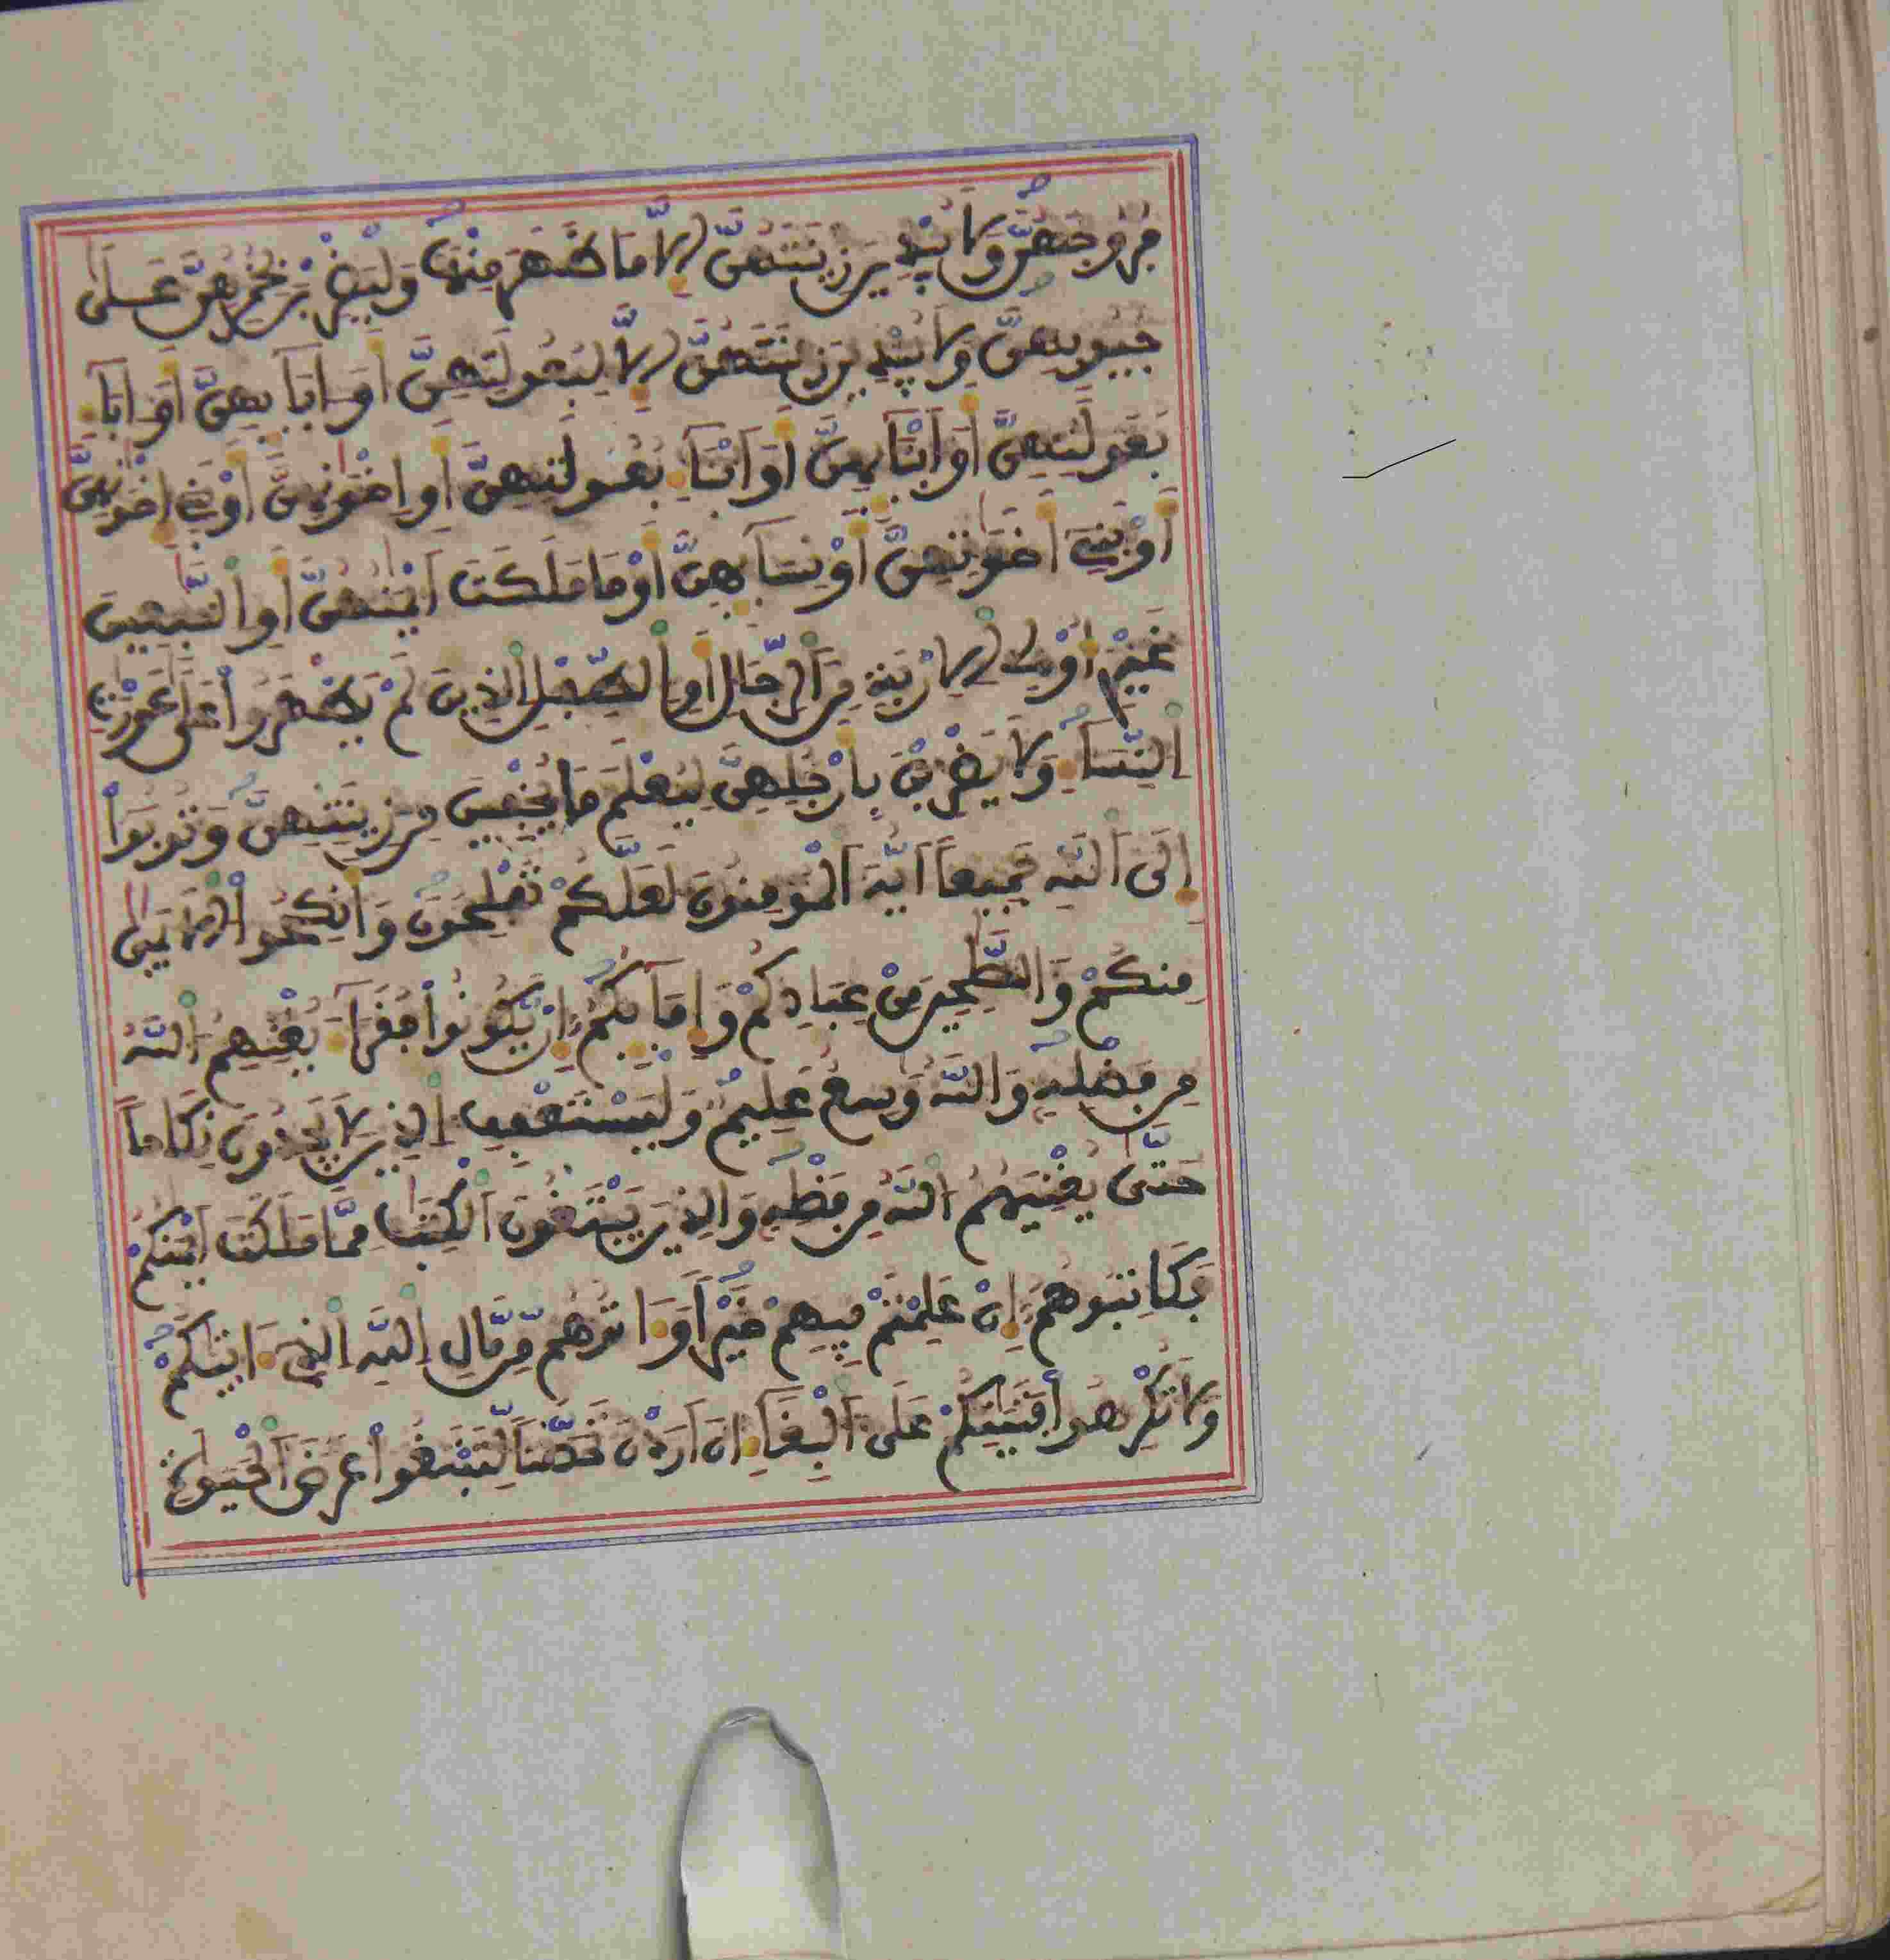 فُرُوجَهُنَّ وَلَا يُبْدِينَ زِينَتَهُنَّ إِلَّا مَا ظَهَرَ مِنْهَا وَلْيَضْرِبْنَ بِخُمُرِهِنَّ عَلَىٰ
جُيُوبِهِنَّ وَلَا يُبْدِينَ زِينَتَهُنَّ إِلَّا لِبُعُولَتِهِنَّ أَوَ ابَآبِهِنَّ أَوَ ابَآ
بُعُولَتِهِنَّ أَوَ ابْنَآبِهِنَّ أَوَ ابْنَآ بُعُولَتِهِنَّ أَوِ اخْوَٰنِهِنَّ أَوْ بَنِے إِخْوَٰنِهِنَّ
أَوْ بَنِے أَخَوَٰتِهِنَّ أَوْ نِسَآبِهِنَّ أَوْ مَا مَلَكَتَ اَيْمَٰنُهُنَّ أَوِ اِلتَّٰبِعِينَ
غَيْرِ أُوْلِے اِلِارْبَةِ مِنَ اَلرِّجَالِ أَوِ اِلطِّفْلِ اِلذِينَ لَمْ يَظْهَرُواْ عَلَىٰ عَوْرَٰتِ
اِلنِّسَآ وَلَا يَضْرِبْنَ بِأَرْجُلِهِنَّ لِيُعْلَمَ مَا يُخْفِينَ مِن زِينَتِهِنَّ وَتُوبُواْ
إِلَى اَللَّهِ جَمِيعاً اَيُّهَ اَلْمُومِنُونَ لَعَلَّكُمْ تُفْلِحُونَ وَأَنكِحُواْ اُلَايَٰمَىٰ
مِنكُمْ وَالصَّٰلِحِينَ مِنْ عِبَادِكُمْ وَإِمَآبِكُمُ إِنْ يَّكُونُواْ فُقَرَآ يُغْنِهِمُ اُللَّهُ
مِن فَضْلِهِ وَاللَّهُ وَٰسِعٌ عَلِيمٌ وَلْيَسْتَعْفِفِ اِلذِينَ لَا يَجِدُونَ نِكَاحاً
حَتَّىٰ يُغْنِيَهُمُ اُللَّهُ مِن فَضْلِهِ وَالذِينَ يَبْتَغُونَ اَلْكِتَٰبَ مِمَّا مَلَكَتَ اَيْمَٰنُكُمْ
فَكَاتِبُوهُمُ إِنْ عَلِمْتُمْ فِيهِمْ خَيْراً وَءَاتُوهُم مِّن مَّالِ اِللَّهِ اِلذِے ءَاتَيٰكُمْ
وَلَا تُكْرِهُواْ فَتَيَٰتِكُمْ عَلَى اَلْبِغَآ اِنَ اَرَدْنَ تَحَصُّناً لِّتَبْتَغُواْ عَرَضَ اَلْحَيَوٰةِ